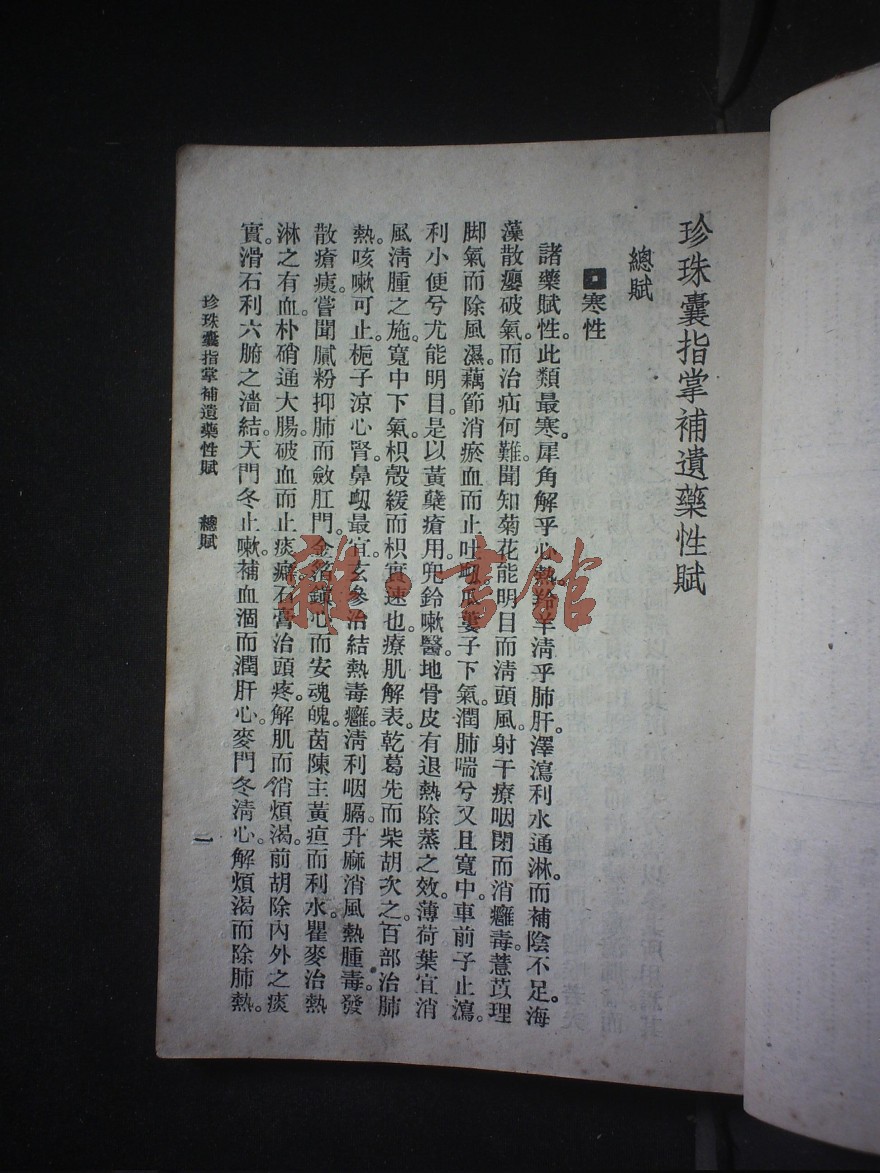 珍珠囊指掌補遺藥性賦
總賦
寒性
諸藥賦性。此類最寒。犀角解乎心熱。羚羊清乎肺肝。澤瀉利水通淋。而補陰不足。海
藻散癭破氣。而治疝何難。聞知菊花能明目而清頭風。射干療咽閉而消癰毒。薏苡理
脚氣而除風濕。藕節消瘀血而止吐衂。瓜蔞子下氣。潤肺喘兮又且寬中。車前子止瀉。
利小便兮尤能明目。是以黃蘗瘡用。兜鈴嗽醫。地骨皮有退熱除蒸之效。薄荷葉宜消
風淸腫之施。寬中下氣。枳殼緩而枳實速也。療肌解表。乾葛先而柴胡次之。百部治肺
熱。咳嗽可止。梔子涼心腎。鼻衂最宜。玄參治結熱毒癰。淸利咽膈。升麻消風熱腫毒。發
散瘡痍。嘗聞膩粉抑肺而斂肛門。金箔鎮心而安魂魄。茵陳主黃疸而利水。瞿麥治熱
淋之有血。朴硝通大腸。破血而止痰癖。石膏治頭疼。解肌而消煩渴。前胡除內外之痰
實。滑石利六腑之濇結。天門冬止嗽。補血涸而潤肝心。麥門冬淸心。解煩渴而除肺熱。
珍珠囊指掌補遺藥性賦 總賦
一
雜·書館